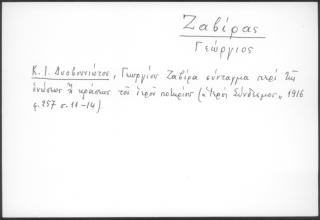 Ζαβίρας
Γεώργιος
Κ. Ι. Δυοβουνιώτου, Γεωργίου Ζαβίρα σύνταγμα περὶ τῆς
ἑνώσεως ἢ κράσεως τοῦ ἱεροῦ ποτηρίου («Ἱερὸς Σύνδεσμος» 1916
φ. 257 σ. 11-14).